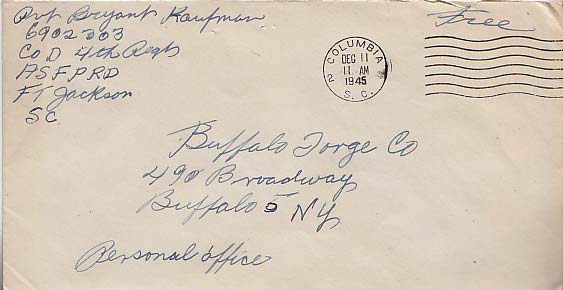 Pvt Bryant Kaufman
6902303
Co D 4th Regt
ASFPRD
FT Jackson
SC
Free
COLUMBIA
DEC 11
11 AM
1945
2
S. C.
Buffalo Forge Co
490 Broadway
Buffalo 5 NY
Personal office